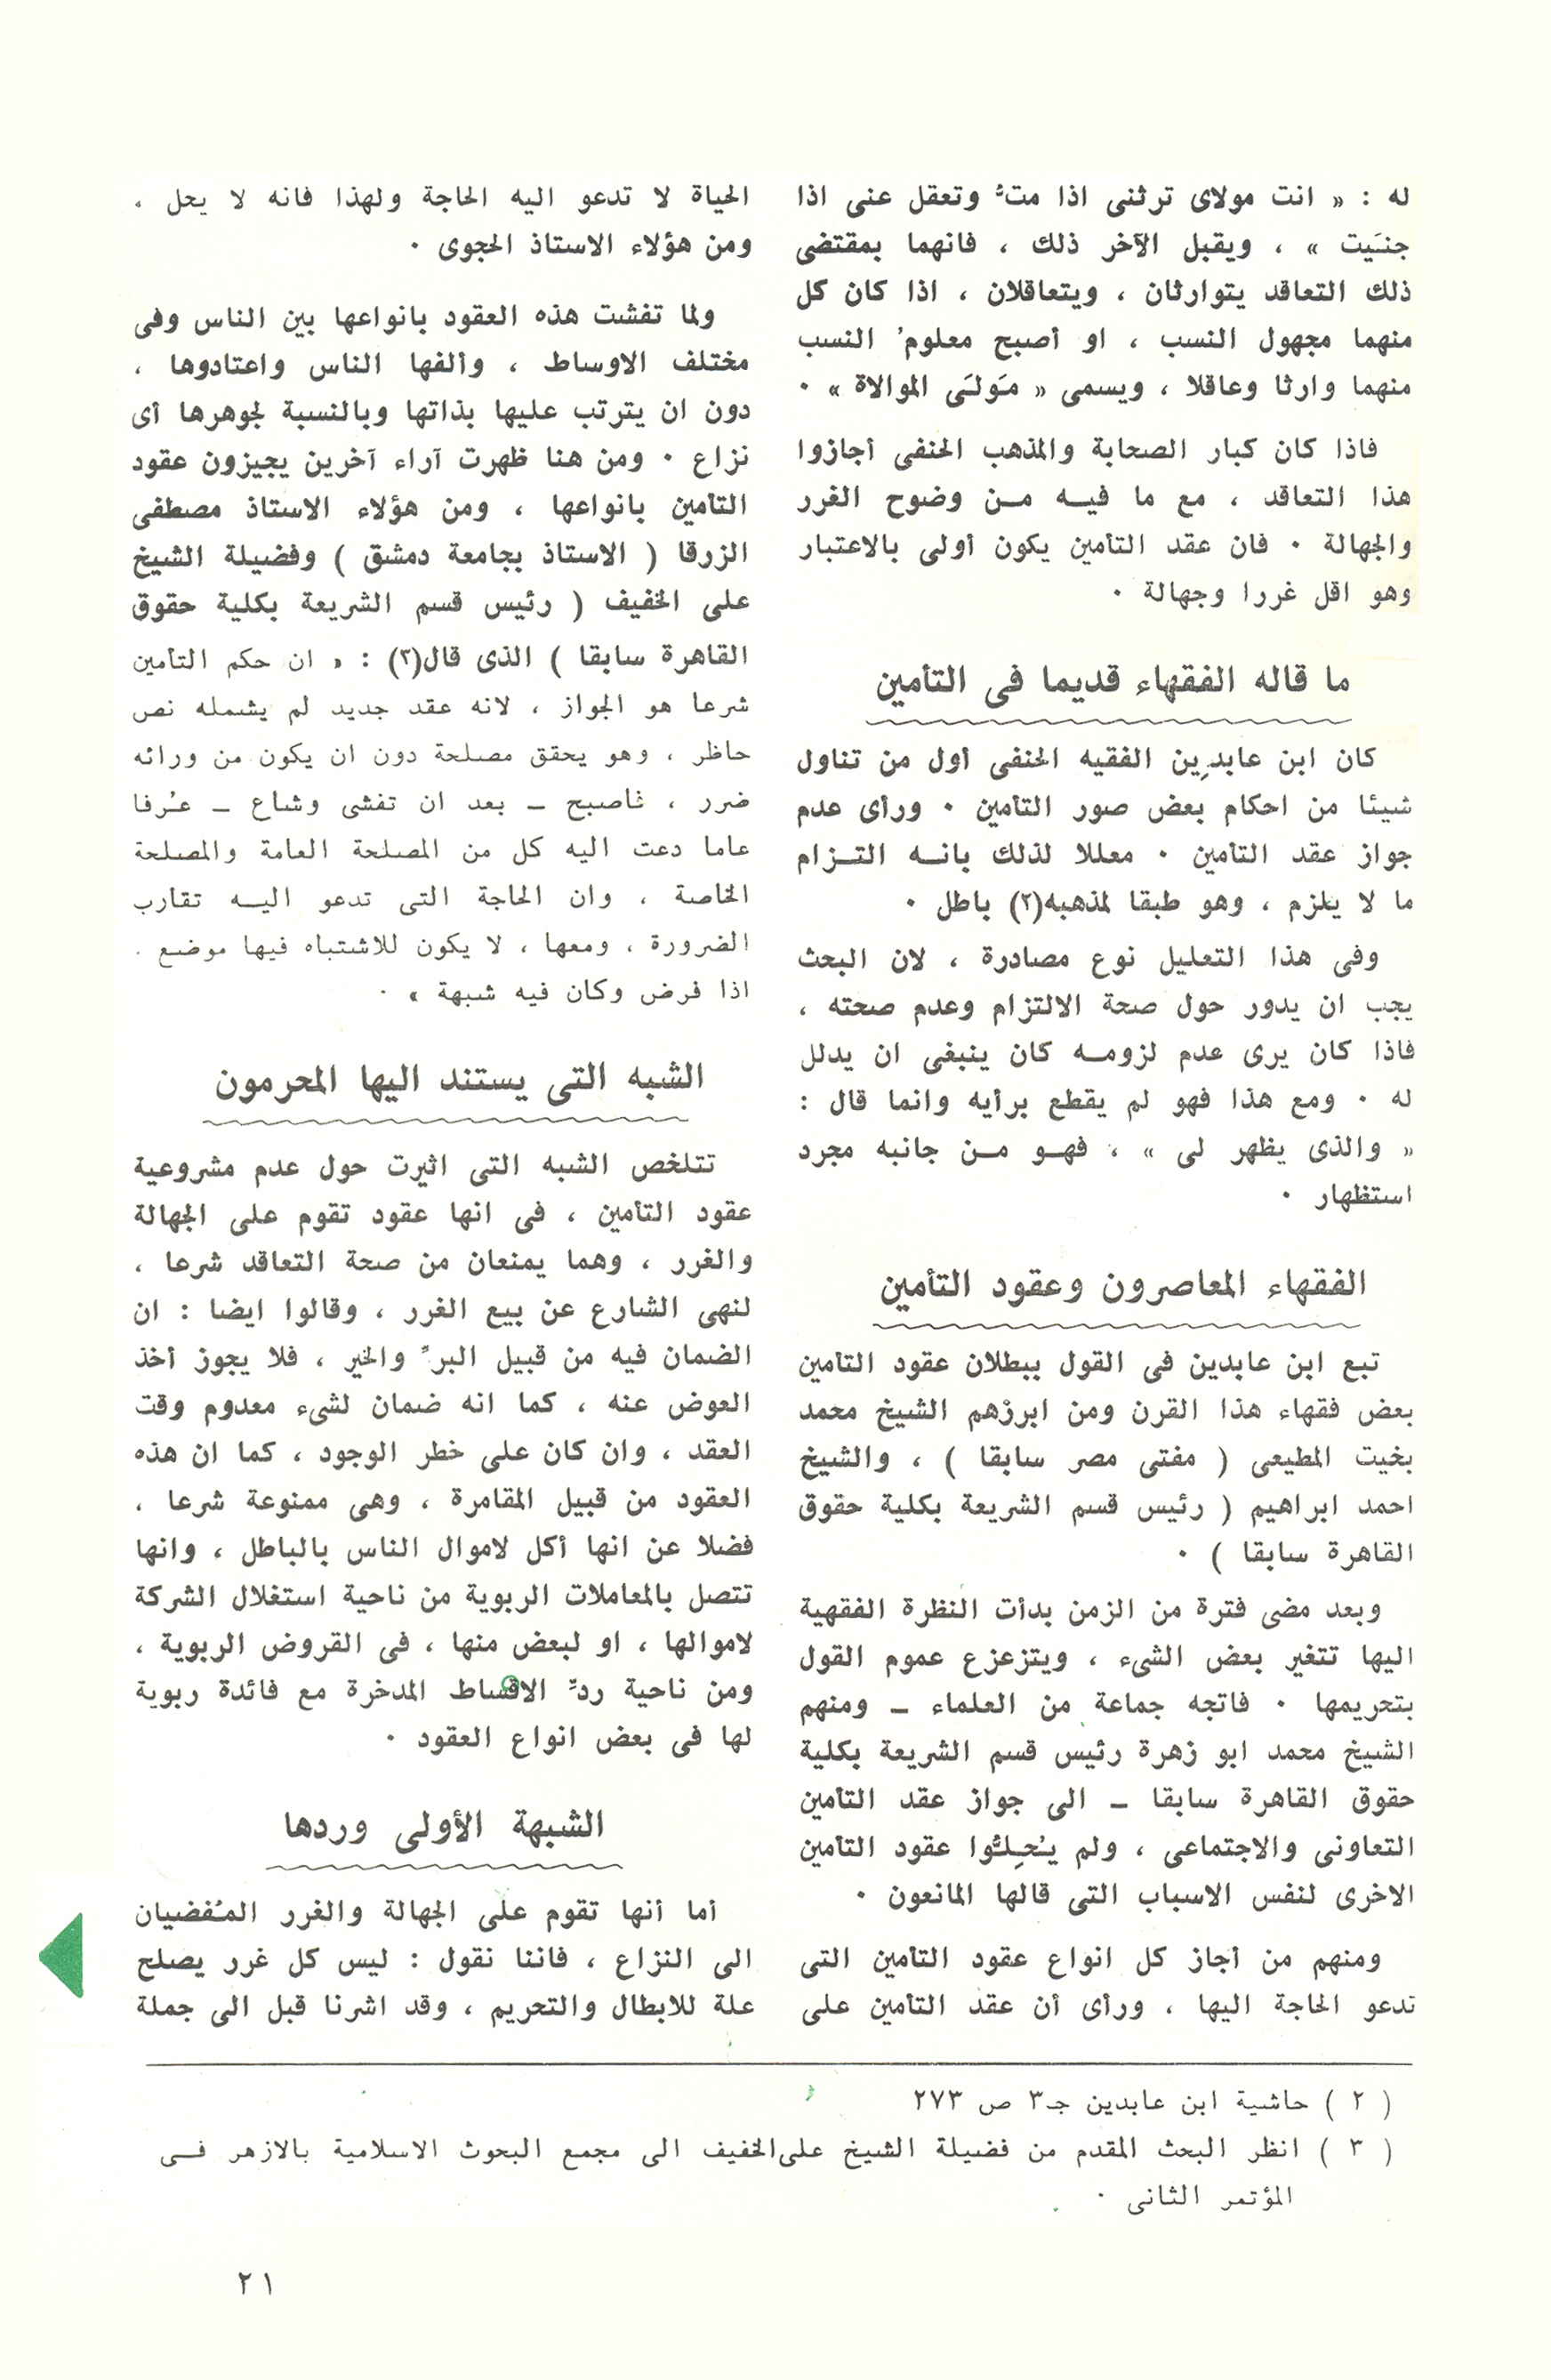 له : « انت مولاى ترثنى اذا متُّ وتعقل عنى اذا
جنَيت » ، ويقبل الآخر ذلك ، فانهما بمقتضى
ذلك التعاقد يتوارثان ، ويتعاقلان ، اذا كان كل
منهما مجهول النسب ، او أصبح معلومُ النسب
منهما وارثا وعاقلا ، ويسمى « مَولَى الموالاة » ٠
فاذا كان كبار الصحابة والمذهب الحنفى أجازوا
هذا التعاقد ، مع ما فيه من وضوح الغرر
والجهالة ٠ فان عقد التأمين يكون أولى بالاعتبار
وهو اقل غررا وجهالة ٠
ما قاله الفقهاء قديما فى التأمين
كان ابن عابدِين الفقيه الحنفى أول من تناول
شيئا من احكام بعض صور التأمين ٠ ورأى عدم
جواز عقد التأمين ٠ معللا لذلك بانه التزام
ما لا يلزم ، وهو طبقا لمذهبه(٢) باطل ٠
وفى هذا التعليل نوع مصادرة ، لان البحث
يجب ان يدور حول صحة الالتزام وعدم صحته ،
فاذا كان يرى عدم لزومه كان ينبغى ان يدلل
له ٠ ومع هذا فهو لم يقطع برأيه وانما قال :
« والذى يظهر لى » ، فهو من جانبه مجرد
استظهار ٠
الفقهاء المعاصرون وعقود التأمين
تبع ابن عابدين فى القول ببطلان عقود التأمين
بعض فقهاء هذا القرن ومن ابرزهم الشيخ محمد
بخيت المطيعى ( مفتى مصر سابقا ) ، والشيخ
احمد ابراهيم ( رئيس قسم الشريعة بكلية حقوق
القاهرة سابقا ) ٠
وبعد مضى فترة من الزمن بدأت النظرة الفقهية
اليها تتغير بعض الشىء ، ويتزعزع عموم القول
بتحريمها ٠ فاتجه جماعة من العلماء ــ ومنهم
الشيخ محمد ابو زهرة رئيس قسم الشريعة بكلية
حقوق القاهرة سابقا ــ الى جواز عقد التأمين
التعاونى والاجتماعى ، ولم يُحِلُّوا عقود التأمين
الاخرى لنفس الاسباب التى قالها المانعون ٠
ومنهم من أجاز كل انواع عقود التأمين التى
تدعو الحاجة اليها ، ورأى أن عقد التأمين على
الحياة لا تدعو اليه الحاجة ولهذا فانه لا يحل ،
ومن هؤلاء الاستاذ الحجوى ٠
ولما تفشت هذه العقود بانواعها بين الناس وفى
مختلف الاوساط ، وألفها الناس واعتادوها ،
دون ان يترتب عليها بذاتها وبالنسبة لجوهرها أى
نزاع ٠ ومن هنا ظهرت آراء آخرين يجيزون عقود
التأمين بانواعها ، ومن هؤلاء الاستاذ مصطفى
الزرقا ( الاستاذ بجامعة دمشق ) وفضيلة الشيخ
على الخفيف ( رئيس قسم الشريعة بكلية حقوق
القاهرة سابقا ) الذى قال(٣) : « ان حكم التأمين
شرعا هو الجواز ، لانه عقد جديد لم يشمله نص
حاظر ، وهو يحقق مصلحة دون ان يكون من ورائه
ضرر ، فاصبح ــ بعد ان تفشى وشاع ــ عُرفا
عاما دعت اليه كل من المصلحة العامة والمصلحة
الخاصة ، وان الحاجة التى تدعو اليه تقارب
الضرورة ، ومعها ، لا يكون للاشتباه فيها موضع .
اذا فرض وكان فيه شبهة » ٠
الشبه التى يستند اليها المحرمون
تتلخص الشبه التى اثيرت حول عدم مشروعية
عقود التأمين ، فى انها عقود تقوم على الجهالة
والغرر ، وهما يمنعان من صحة التعاقد شرعا ،
لنهى الشارع عن بيع الغرر ، وقالوا ايضا : ان
الضمان فيه من قبيل البرِّ والخير ، فلا يجوز أخذ
العوض عنه ، كما انه ضمان لشىء معدوم وقت
العقد ، وان كان على خطر الوجود ، كما ان هذه
العقود من قبيل المقامرة ، وهى ممنوعة شرعا ،
فضلا عن انها أكل لاموال الناس بالباطل ، وانها
تتصل بالمعاملات الربوية من ناحية استغلال الشركة
لاموالها ، او لبعض منها ، فى القروض الربوية ،
ومن ناحية ردِّ الاقساط المدخرة مع فائدة ربوية
لها فى بعض انواع العقود ٠
الشبهة الأولى وردها
أما أنها تقوم على الجهالة والغرر المُفضيان
الى النزاع ، فاننا نقول : ليس كل غرر يصلح
علة للابطال والتحريم ، وقد اشرنا قبل الى جملة
( ٢ ) حاشية ابن عابدين جـ٣ ص ٢٧٣
( ٣ ) انظر البحث المقدم من فضيلة الشيخ على الخفيف الى مجمع البحوث الاسلامية بالازهر فى
المؤتمر الثانى ٠
٢١